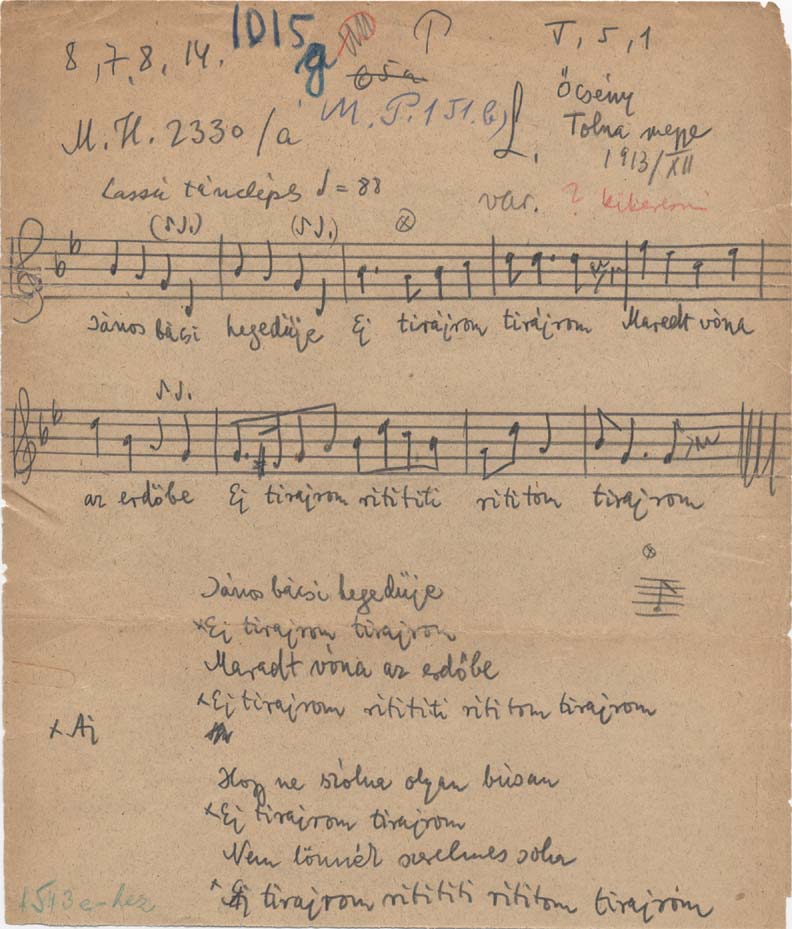 8, 7, 8, 14.
1015
g
T, 5, 1
65a
M. P. 151. b)
Öcsény
M. H. 2330/a
L.
Tolna megye
1913/XII
Lassú tánclépés ♩ = 88
var.
? kikeresni
János bácsi hegedűje Ej tirájrom tirájrom Maradt vóna
az erdőbe Ej tirajrom ritititi rititom tirajrom
János bácsi hegedűje
×Ej tirajrom tirajrom
Maradt vóna az erdőbe
×Ej tirajrom ritititi rititom tirajrom
× Aj
Hogy ne szólna olyan búsan
×Ej tirajrom tirajrom
Nem lönnék szerelmes soha
× Ej tirajrom ritititi rititom tirajrom
1513e-hez